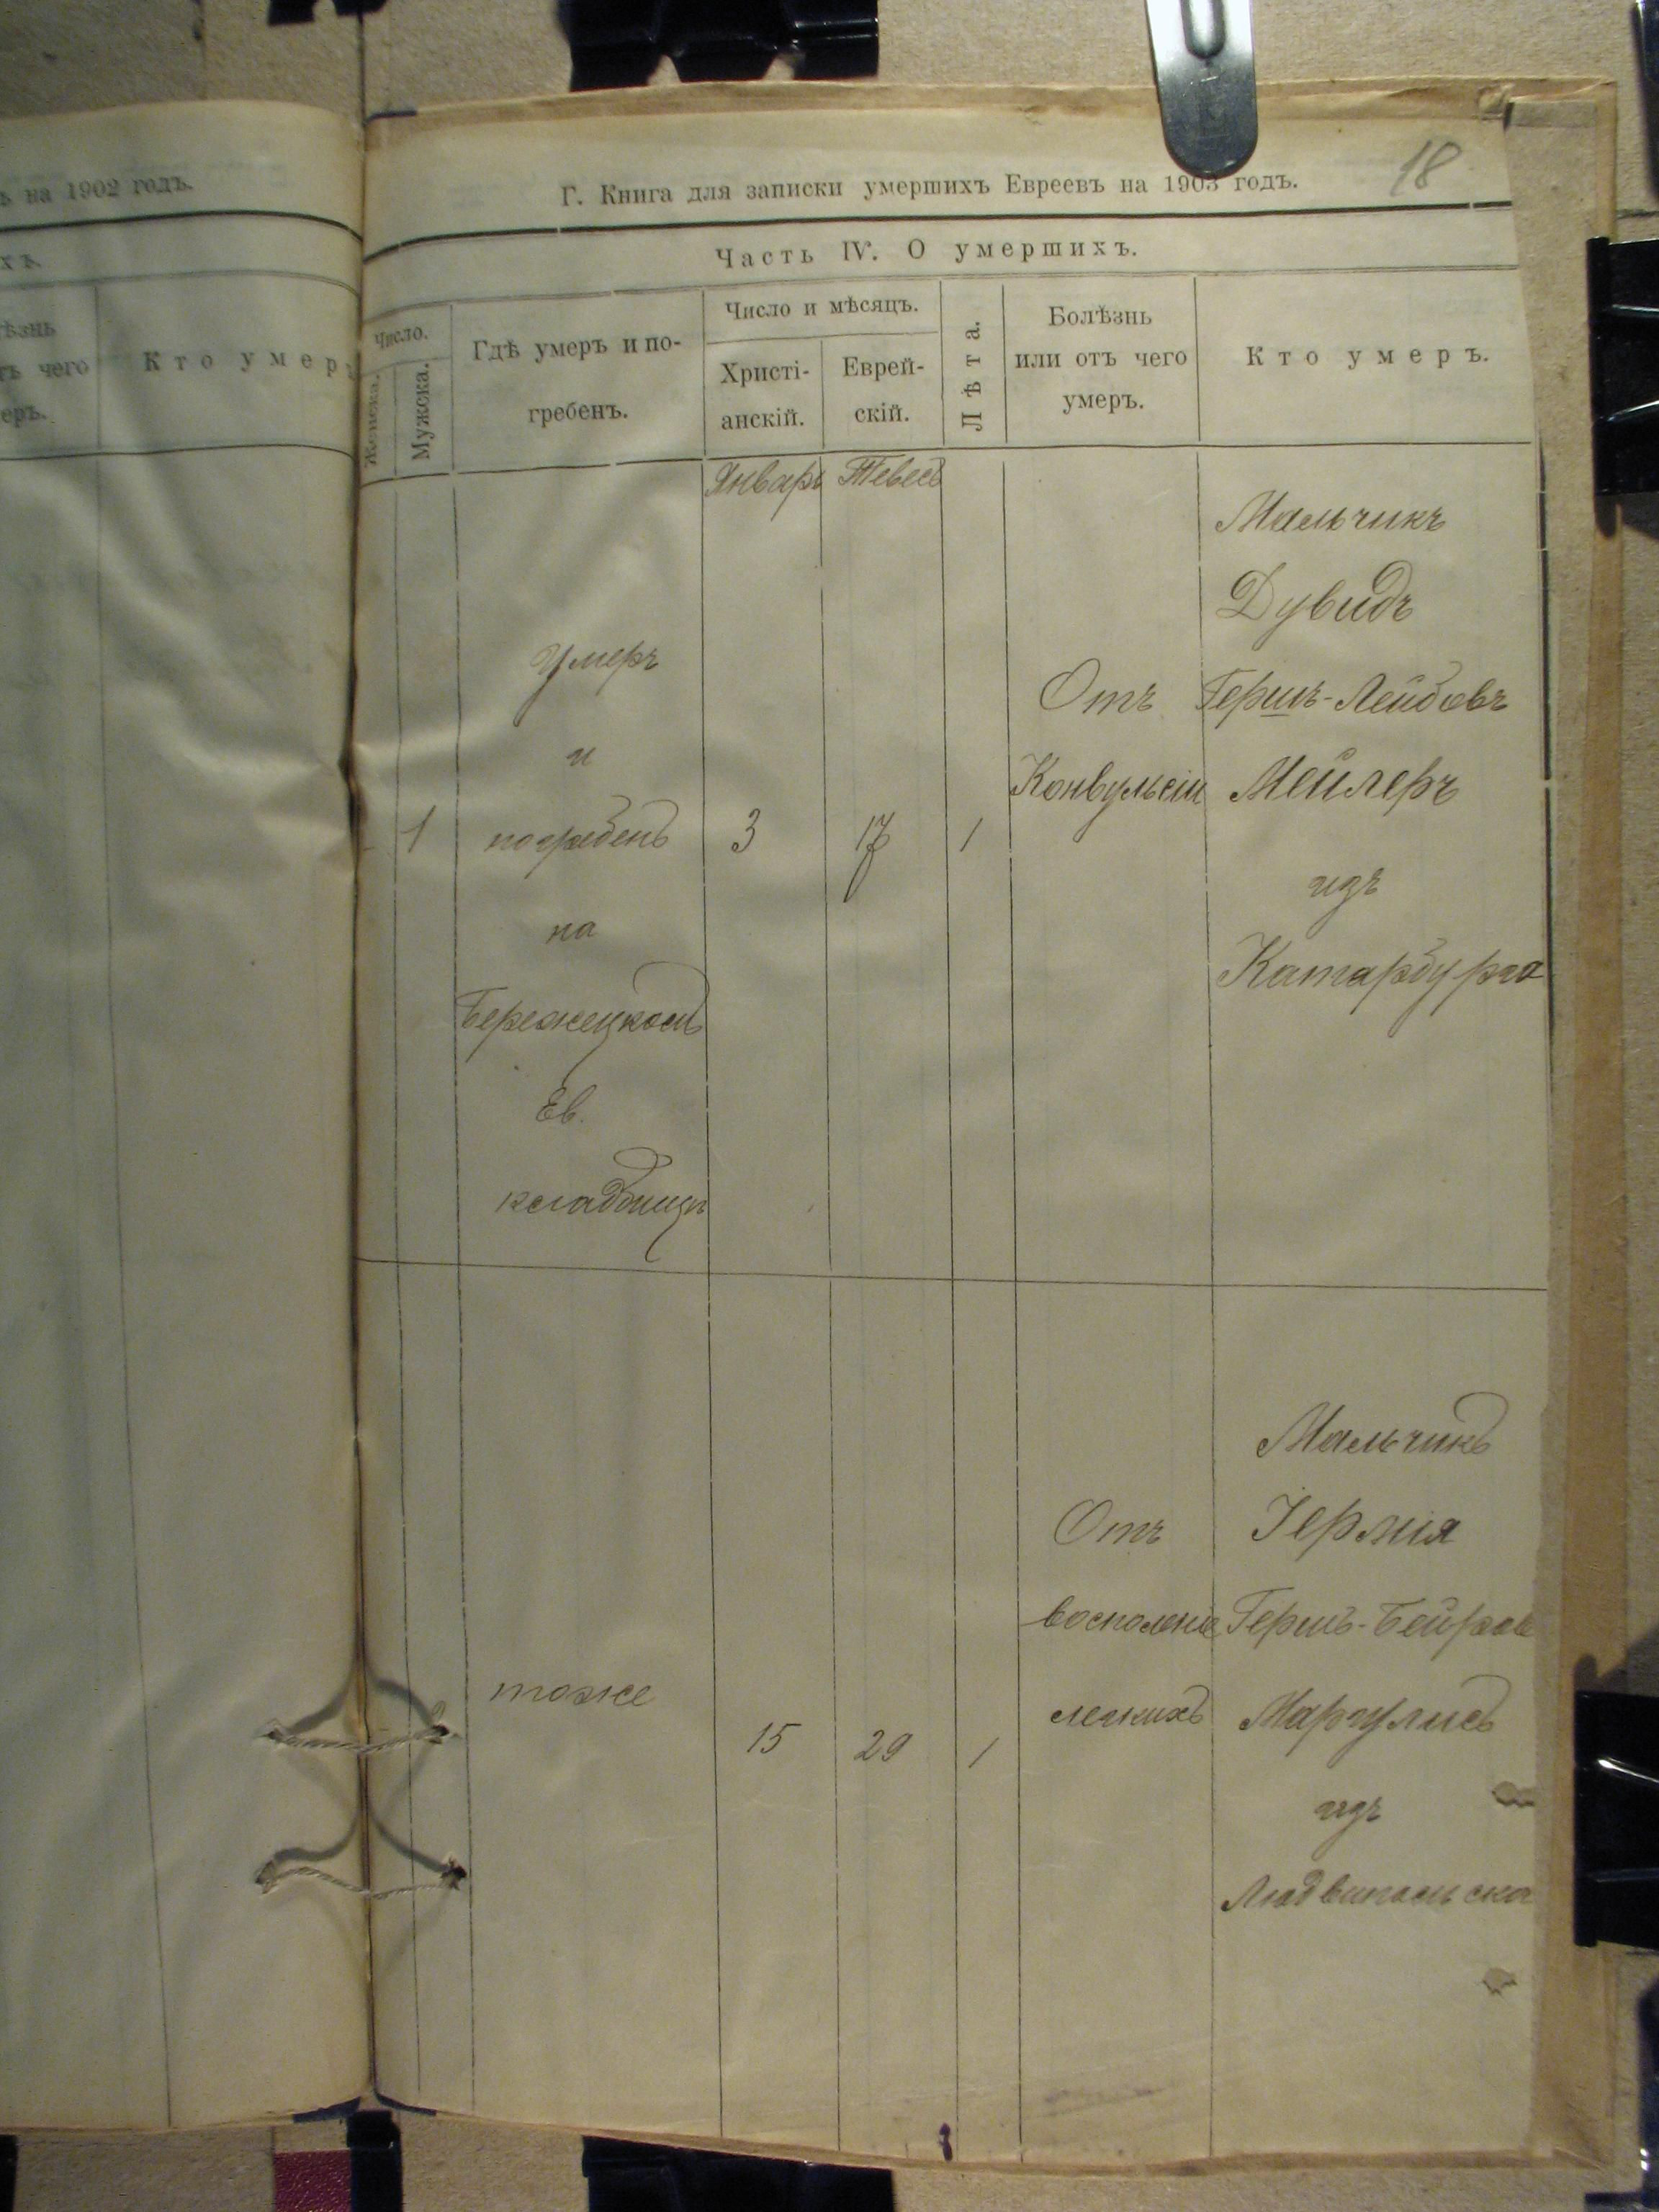 ъ на 1902 годъ.
хъ.
ѣзнь
тъ чего
еръ.
Кто умер
18
Г. Книга для записки умершихъ Евреевъ на 1903 годъ.
Часть IV. О умершихъ.
Число.
Женска.
Мужска.
Гдѣ умеръ и по-
гребенъ.
Число и мѣсяцъ.
Христі-
анскій.
Еврей-
скій.
Лѣта.
Болѣзнь
или отъ чего
умеръ.
Кто умеръ.
Январь Тевесъ
1
Умеръ
и
погребенъ
на
Бережецкомъ
Ев.
кладбищѣ
3
17
1
Отъ
Конвульсіи
Мальчикъ
Дувидъ
Гершъ-Лейбовъ
Мейлеръ
изъ
Катарбурга
тоже
15
29
1
Отъ
восполеніе
легкихъ
Мальчикъ
Іермія
Гершъ-Бейров
Маргулисъ
изъ
Людвипольска